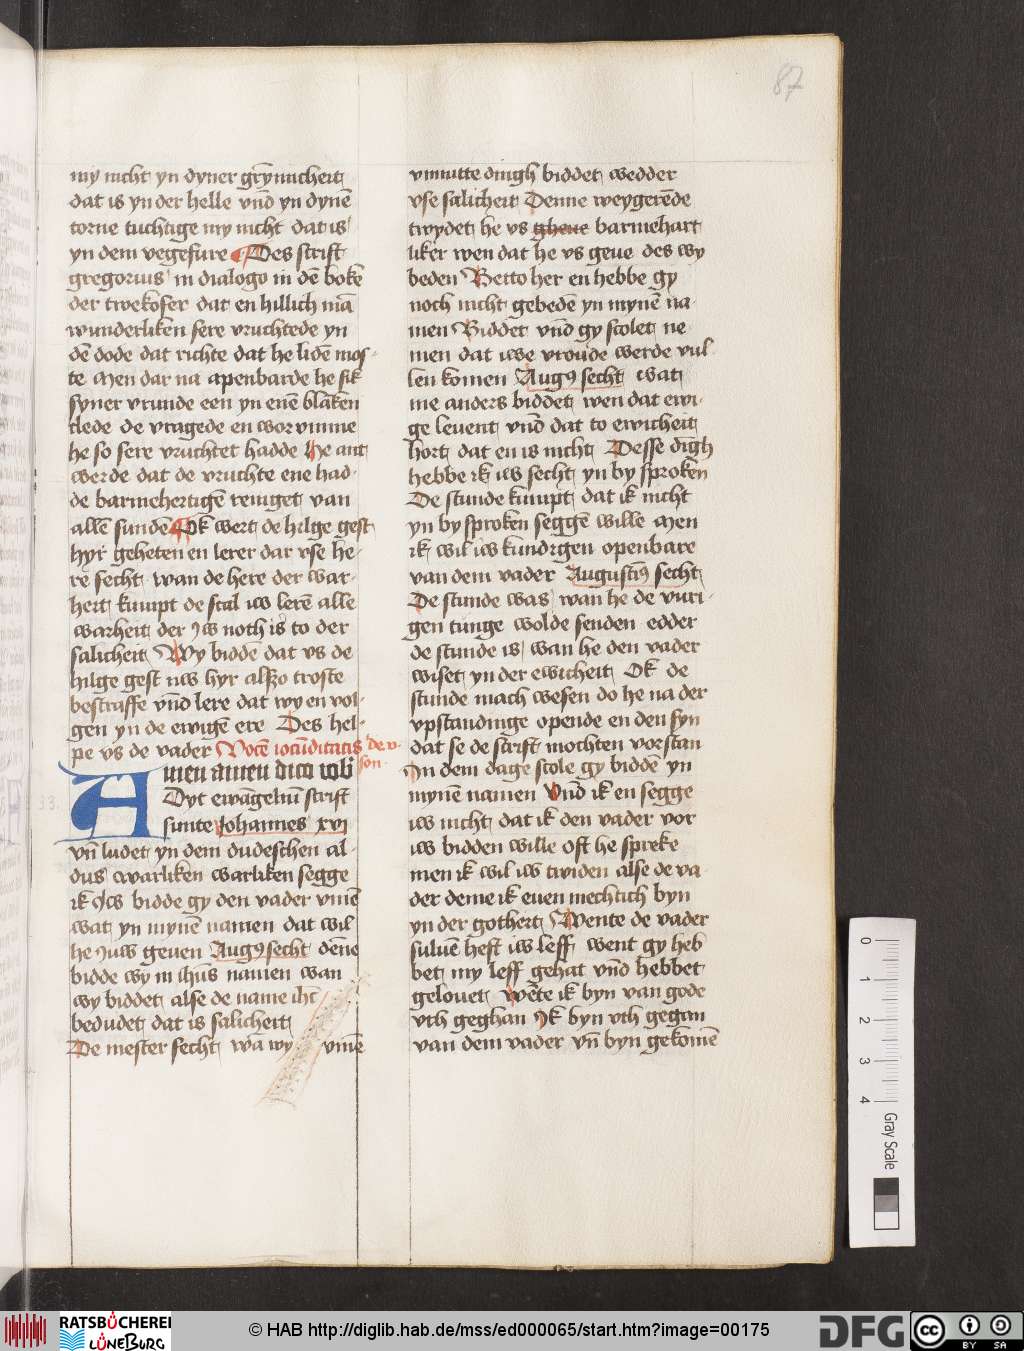 87
my nicht yn dyner grȳnicheit
dat is yn der helle vnd yn dynē
torne tuchtige my nicht dat is
yn dem vegefure Des scrift
gregorius in dialogo in dē boke
der twekofer dat en hillich mā
wunderliken sere vruchtede yn
dē dode dat richte dat he lidē mos-
te Men dar na apenbarde he sik
syner vrunde een yn enē blaken
clede de vragede en wor vmme
he so sere vruchtet hadde He ant
werde dat de vruchte ene had-
de barmehertigē reniget van
allē sunde Ok wert de hilge gest
hyr geheten en lerer dar vse he-
re secht wan de here der war-
heit kumpt de scal iw lerē alle
warheit der yw noth is to der
salicheit Wy biddē dat vs de
hilge gest uw hyr alßo troste
bestraffe vnd lere dat wy en vol-
gen yn de ewigē ere Des hel-
pe vs de vader Vocē iocūditatis de v-
son
Amen amen dico vobis
Dyt ewāgeliū scrift
sunte Johannes xvj
vn̄ ludet yn dem dudeschen al-
dus warliken warliken segge
ik yw bidde gy den vader vmē
wat yn mynē namen dat wil
he yuw geuen Augꝰ secht dēne
bidde wy in ihūs namen wan
wy biddet alse de name ihū
bedudet dat is salicheit
De mester secht wā wy vmē
vnnutte dingh biddet wedder
vse salicheit Denne weygerēde
twydet he vs gheue barmehart
liker wen dat he vs geue des wy
beden Betto her en hebbe gy
noch nicht gebedē yn mynē na
men Biddet vnd gy scolet ne
men dat iwe vroude werde vul
len komen Augꝰ secht wat
me anders biddet wen dat ewi-
ge leuent vnd dat to ewicheit
hort dat en is nicht Desse dīgh
hebbe ik iw secht yn by sproken
De stunde kumpt dat ik nicht
yn by sproken seggē wille Men
ik wil iw kundigen openbare
van dem vader Augustīꝰ secht
De stunde was wan he de vuri-
gen tunge wolde senden edder
de stunde is wan he den vader
wiset yn der ewicheit Ok de
stunde mach wesen do he na der
vpstandinge opende en den syn
dat se de scrift mochten vorstan
In dem dage scole gy biddē yn
mynē namen Vnd ik en segge
iw nicht dat ik den vader vor
iw bidden wille oft he spreke
men ik wil iw twiden alse de va-
der deme ik euen mechtich byn
yn der gotheit Wente de vader
suluē heft iw leff went gy heb
bet my leff gehat vnd hebbet
gelouet Wēte ik byn van gode
vth geghan Ik byn vth gegan
van dem vader vn̄ byn gekomē
0 1 2 3 4 Gray Scale
RATSBÜCHEREI
LÜNEBURG
© HAB http://diglib.hab.de/mss/ed000065/start.htm?image=00175
DFG
cc BY SA